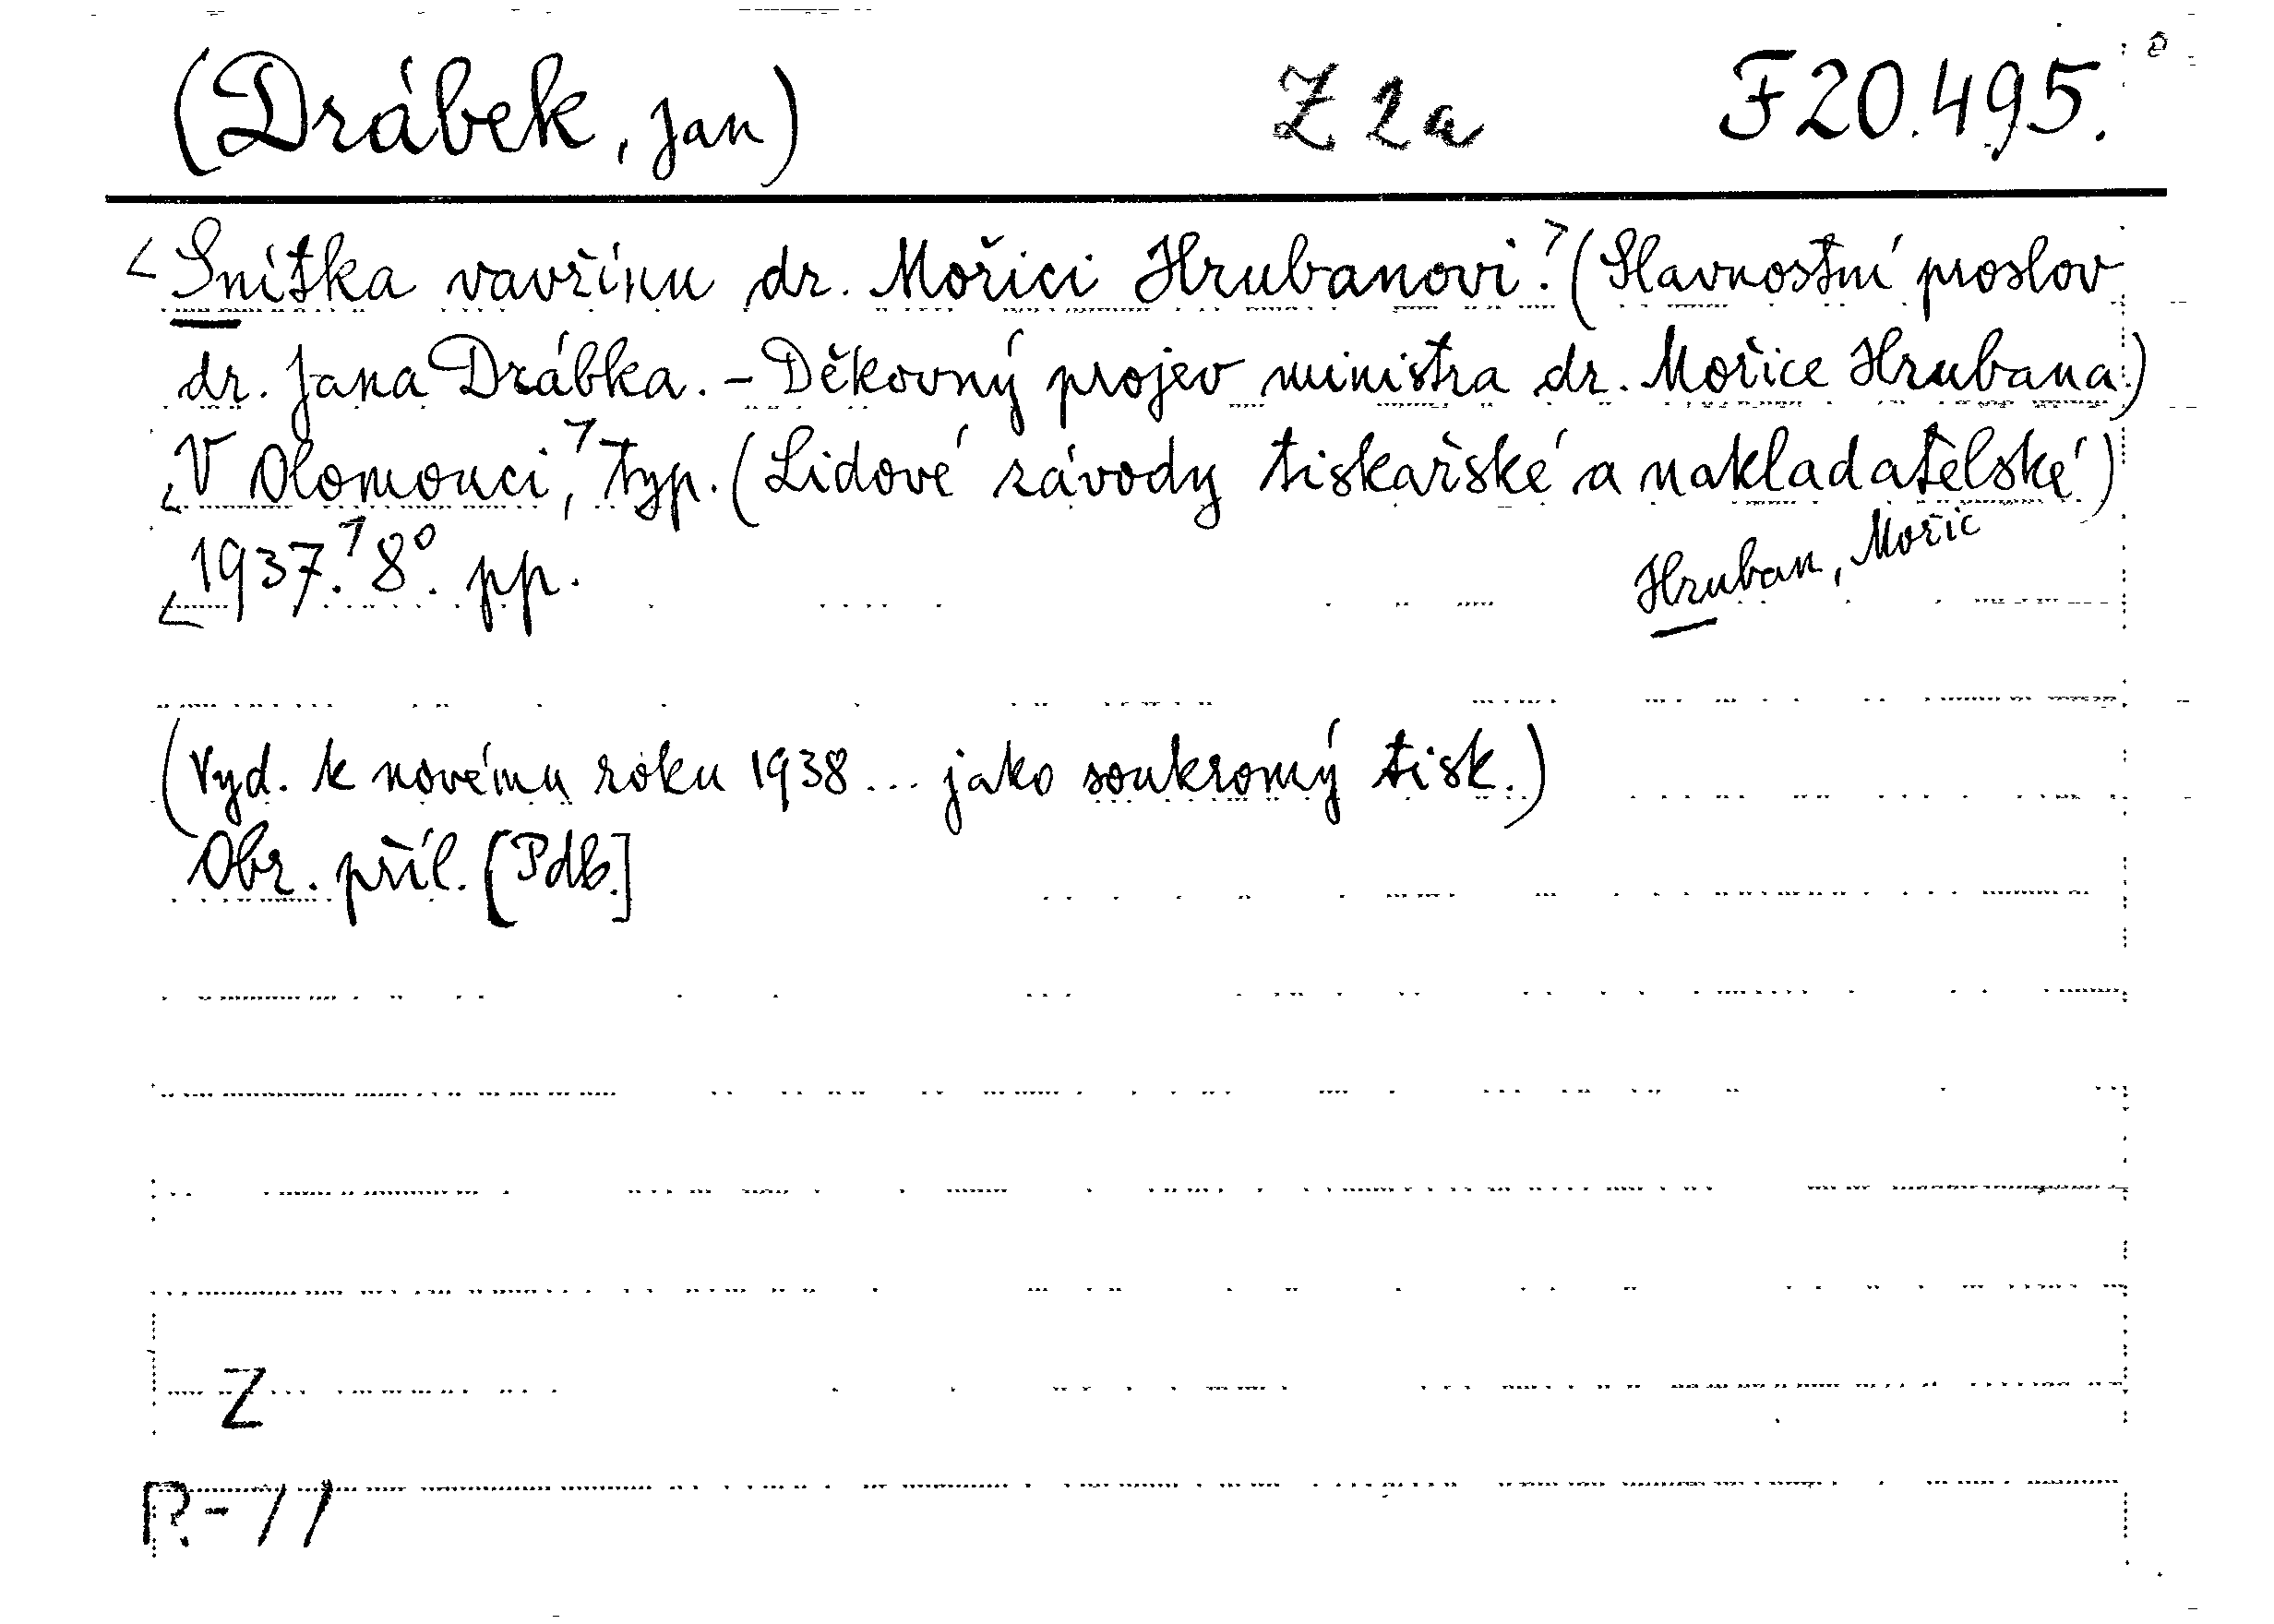 (Drábek, Jan) Z 2a F 20.495.
<Snítka vavřínu dr. Mořici Hrubanovi.> (Slavnostní proslov
dr. Jana Drábka. – Děkovný projev ministra dr. Mořice Hrubana.)
<V Olomouci,> typ. (Lidové závody tiskařské a nakladatelské)
<1937.> 8°. pp.
Hruban, Mořic
(Vyd. k novému roku 1938 ... jako soukromý tisk.)
Obr. příl. [Pdb.]
Z
R-11